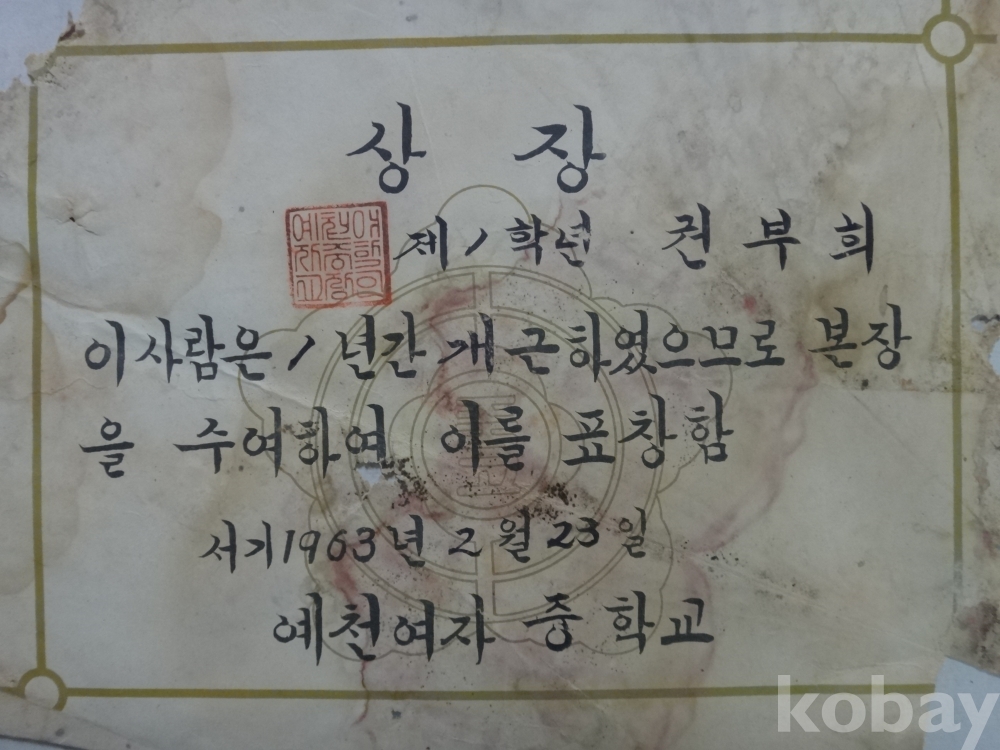 상 장
제 1 학년 권 부 희
이 사람은 1 년간 개근하였으므로 본장
을 수여하여 이를 표창함
서기 1963년 2월 23일
예천여자 중학교
kobay